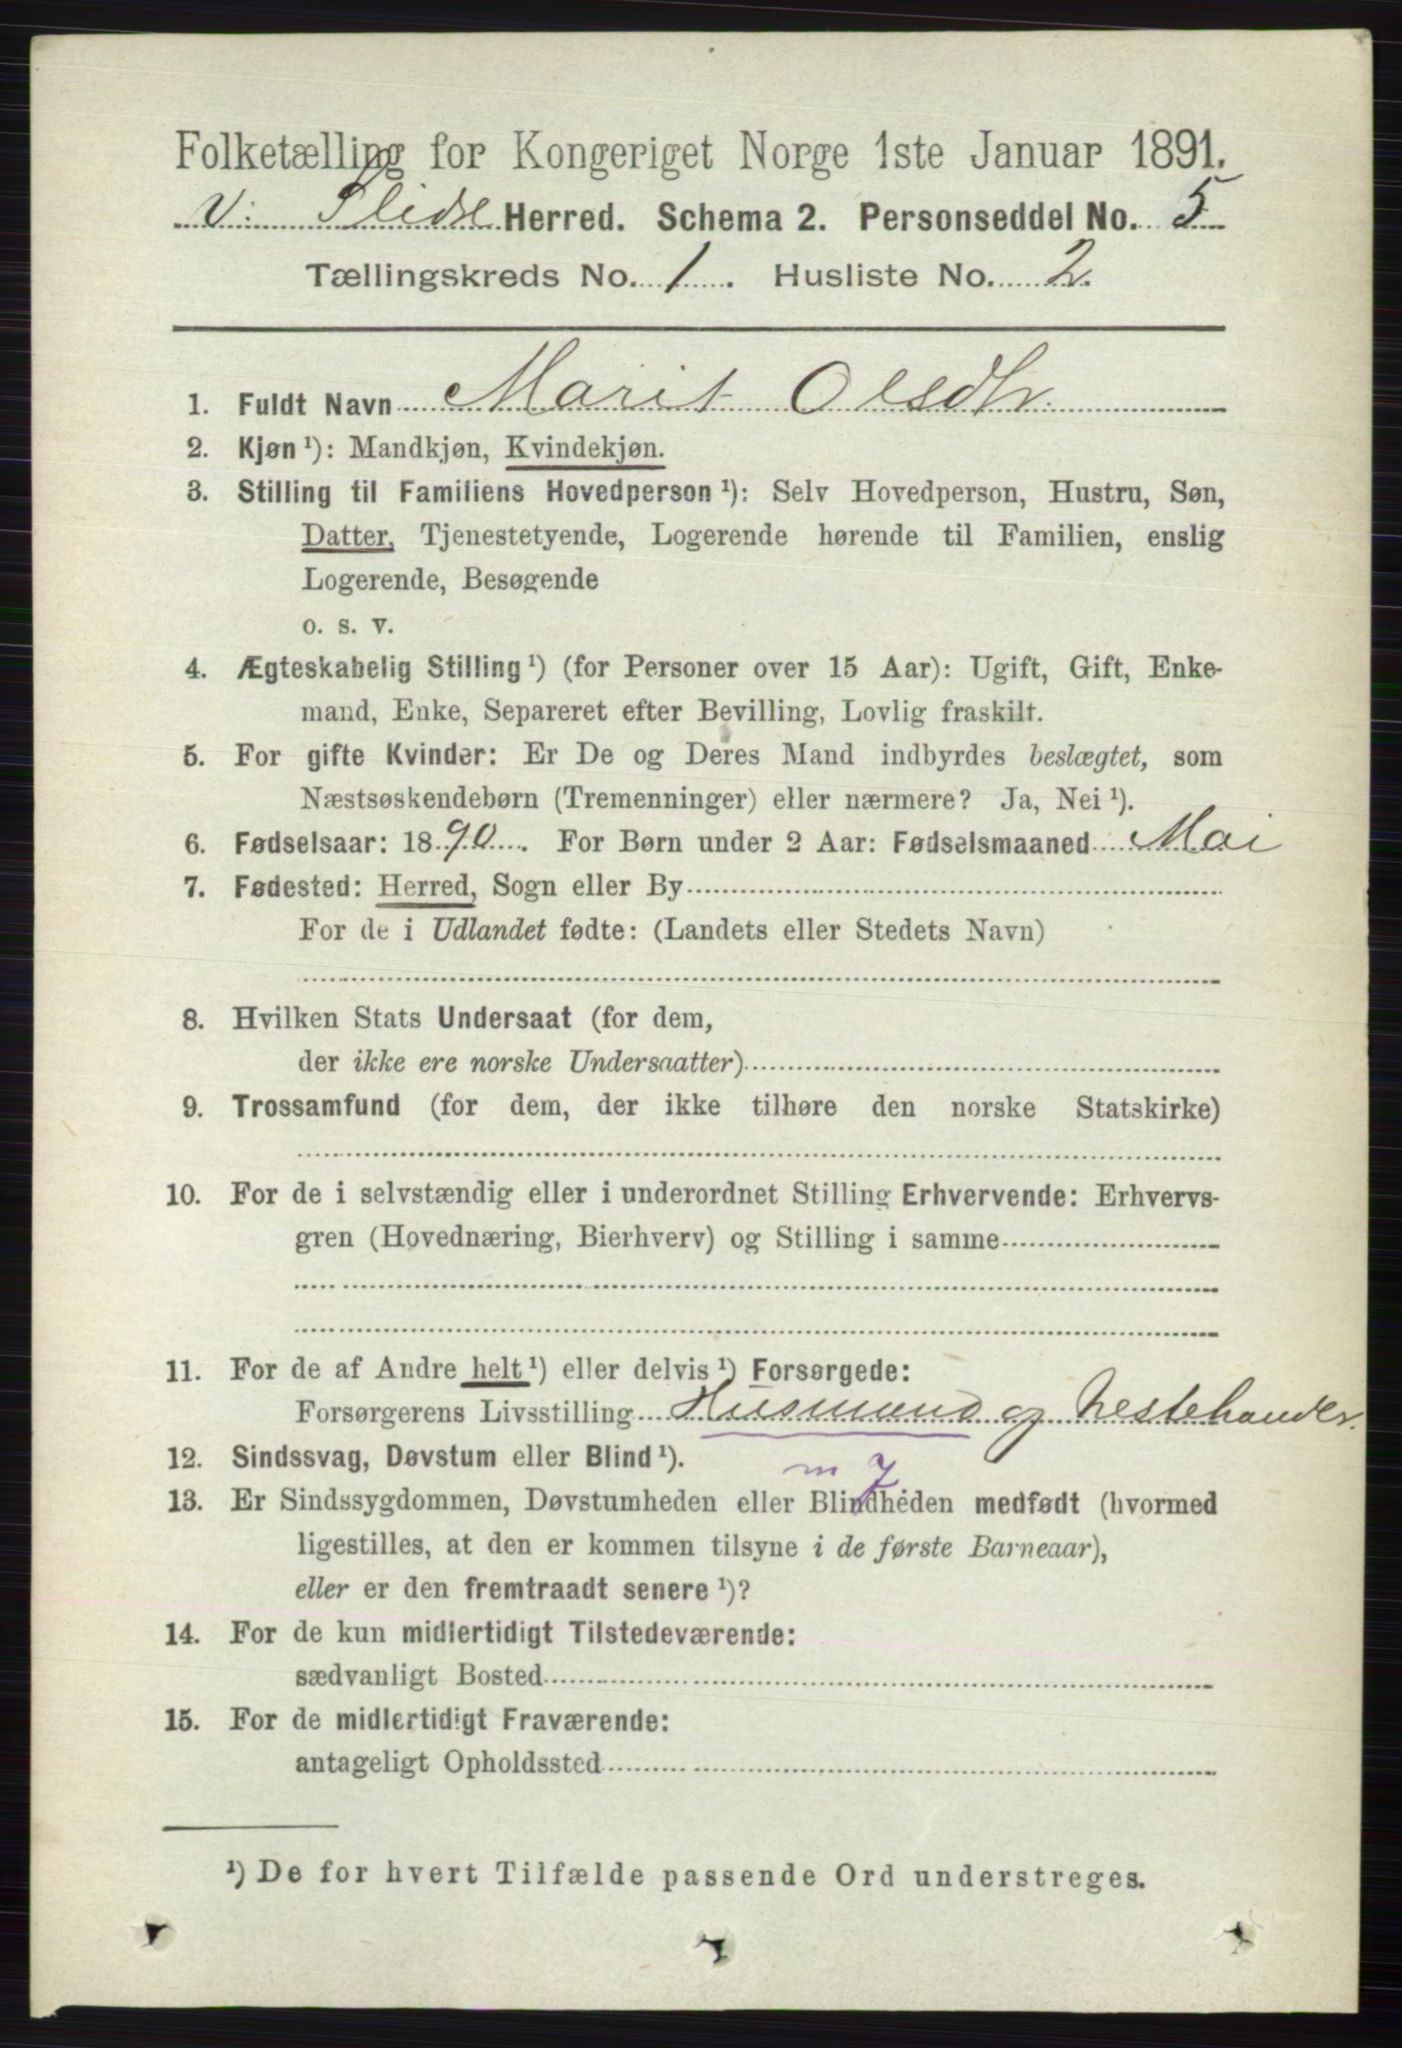 Folketælling for Kongeriget Norge 1ste Januar 1891.
V. Slidre Herred. Schema 2. Personseddel No. 5
Tællingskreds No. 1. Husliste No. 2.
1. Fuldt Navn Marit Olsdtr.
2. Kjøn ¹): Mandkjøn, Kvindekjøn.
3. Stilling til Familiens Hovedperson ¹): Selv Hovedperson, Hustru, Søn,
Datter, Tjenestetyende, Logerende hørende til Familien, enslig
Logerende, Besøgende
o. s. v.
4. Ægteskabelig Stilling ¹) (for Personer over 15 Aar): Ugift, Gift, Enke-
mand, Enke, Separeret efter Bevilling, Lovlig fraskilt.
5. For gifte Kvinder: Er De og Deres Mand indbyrdes beslægtet, som
Næstsøskendebørn (Tremenninger) eller nærmere? Ja, Nei ¹).
6. Fødselsaar: 1890. For Børn under 2 Aar: Fødselsmaaned Mai
7. Fødested: Herred, Sogn eller By
For de i Udlandet fødte: (Landets eller Stedets Navn)
8. Hvilken Stats Undersaat (for dem,
der ikke ere norske Undersaatter)
9. Trossamfund (for dem, der ikke tilhøre den norske Statskirke)
10. For de i selvstændig eller i underordnet Stilling Erhvervende: Erhvervs-
gren (Hovednæring, Bierhverv) og Stilling i samme
11. For de af Andre helt ¹) eller delvis ¹) Forsørgede:
Forsørgerens Livsstilling Husmand og hestehandler.
12. Sindssvag, Døvstum eller Blind ¹).
m 7
13. Er Sindssygdommen, Døvstumheden eller Blindheden medfødt (hvormed
ligestilles, at den er kommen tilsyne i de første Barneaar),
eller er den fremtraadt senere ¹)?
14. For de kun midlertidigt Tilstedeværende:
sædvanligt Bosted
15. For de midlertidigt Fraværende:
antageligt Opholdssted
¹) De for hvert Tilfælde passende Ord understreges.